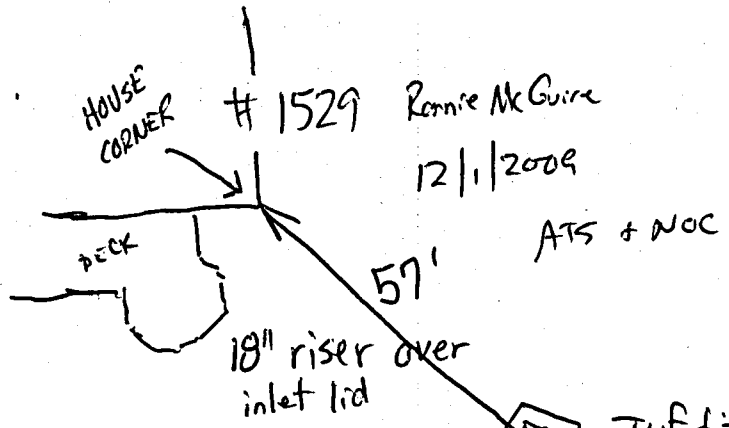 HOUSE
CORNER
# 1529 Ronnie McGuire
12/1/2009
ATS + NOC
DECK
57'
18" riser over
inlet lid